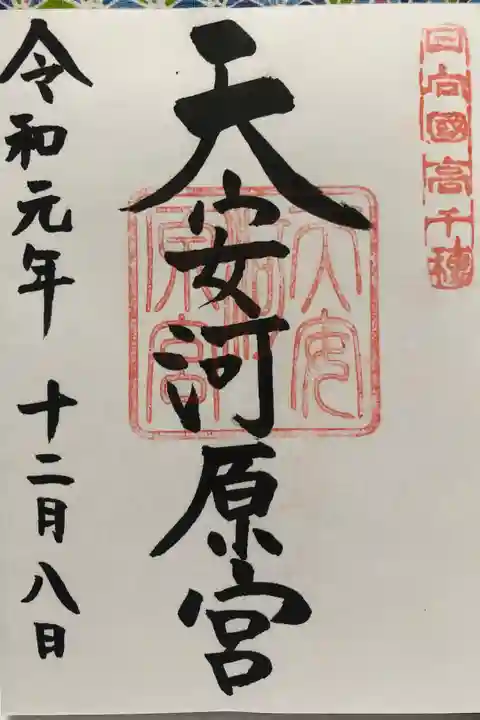 日向國高千穂
天安河原宮
天安河原宮
令和元年 十二月八日